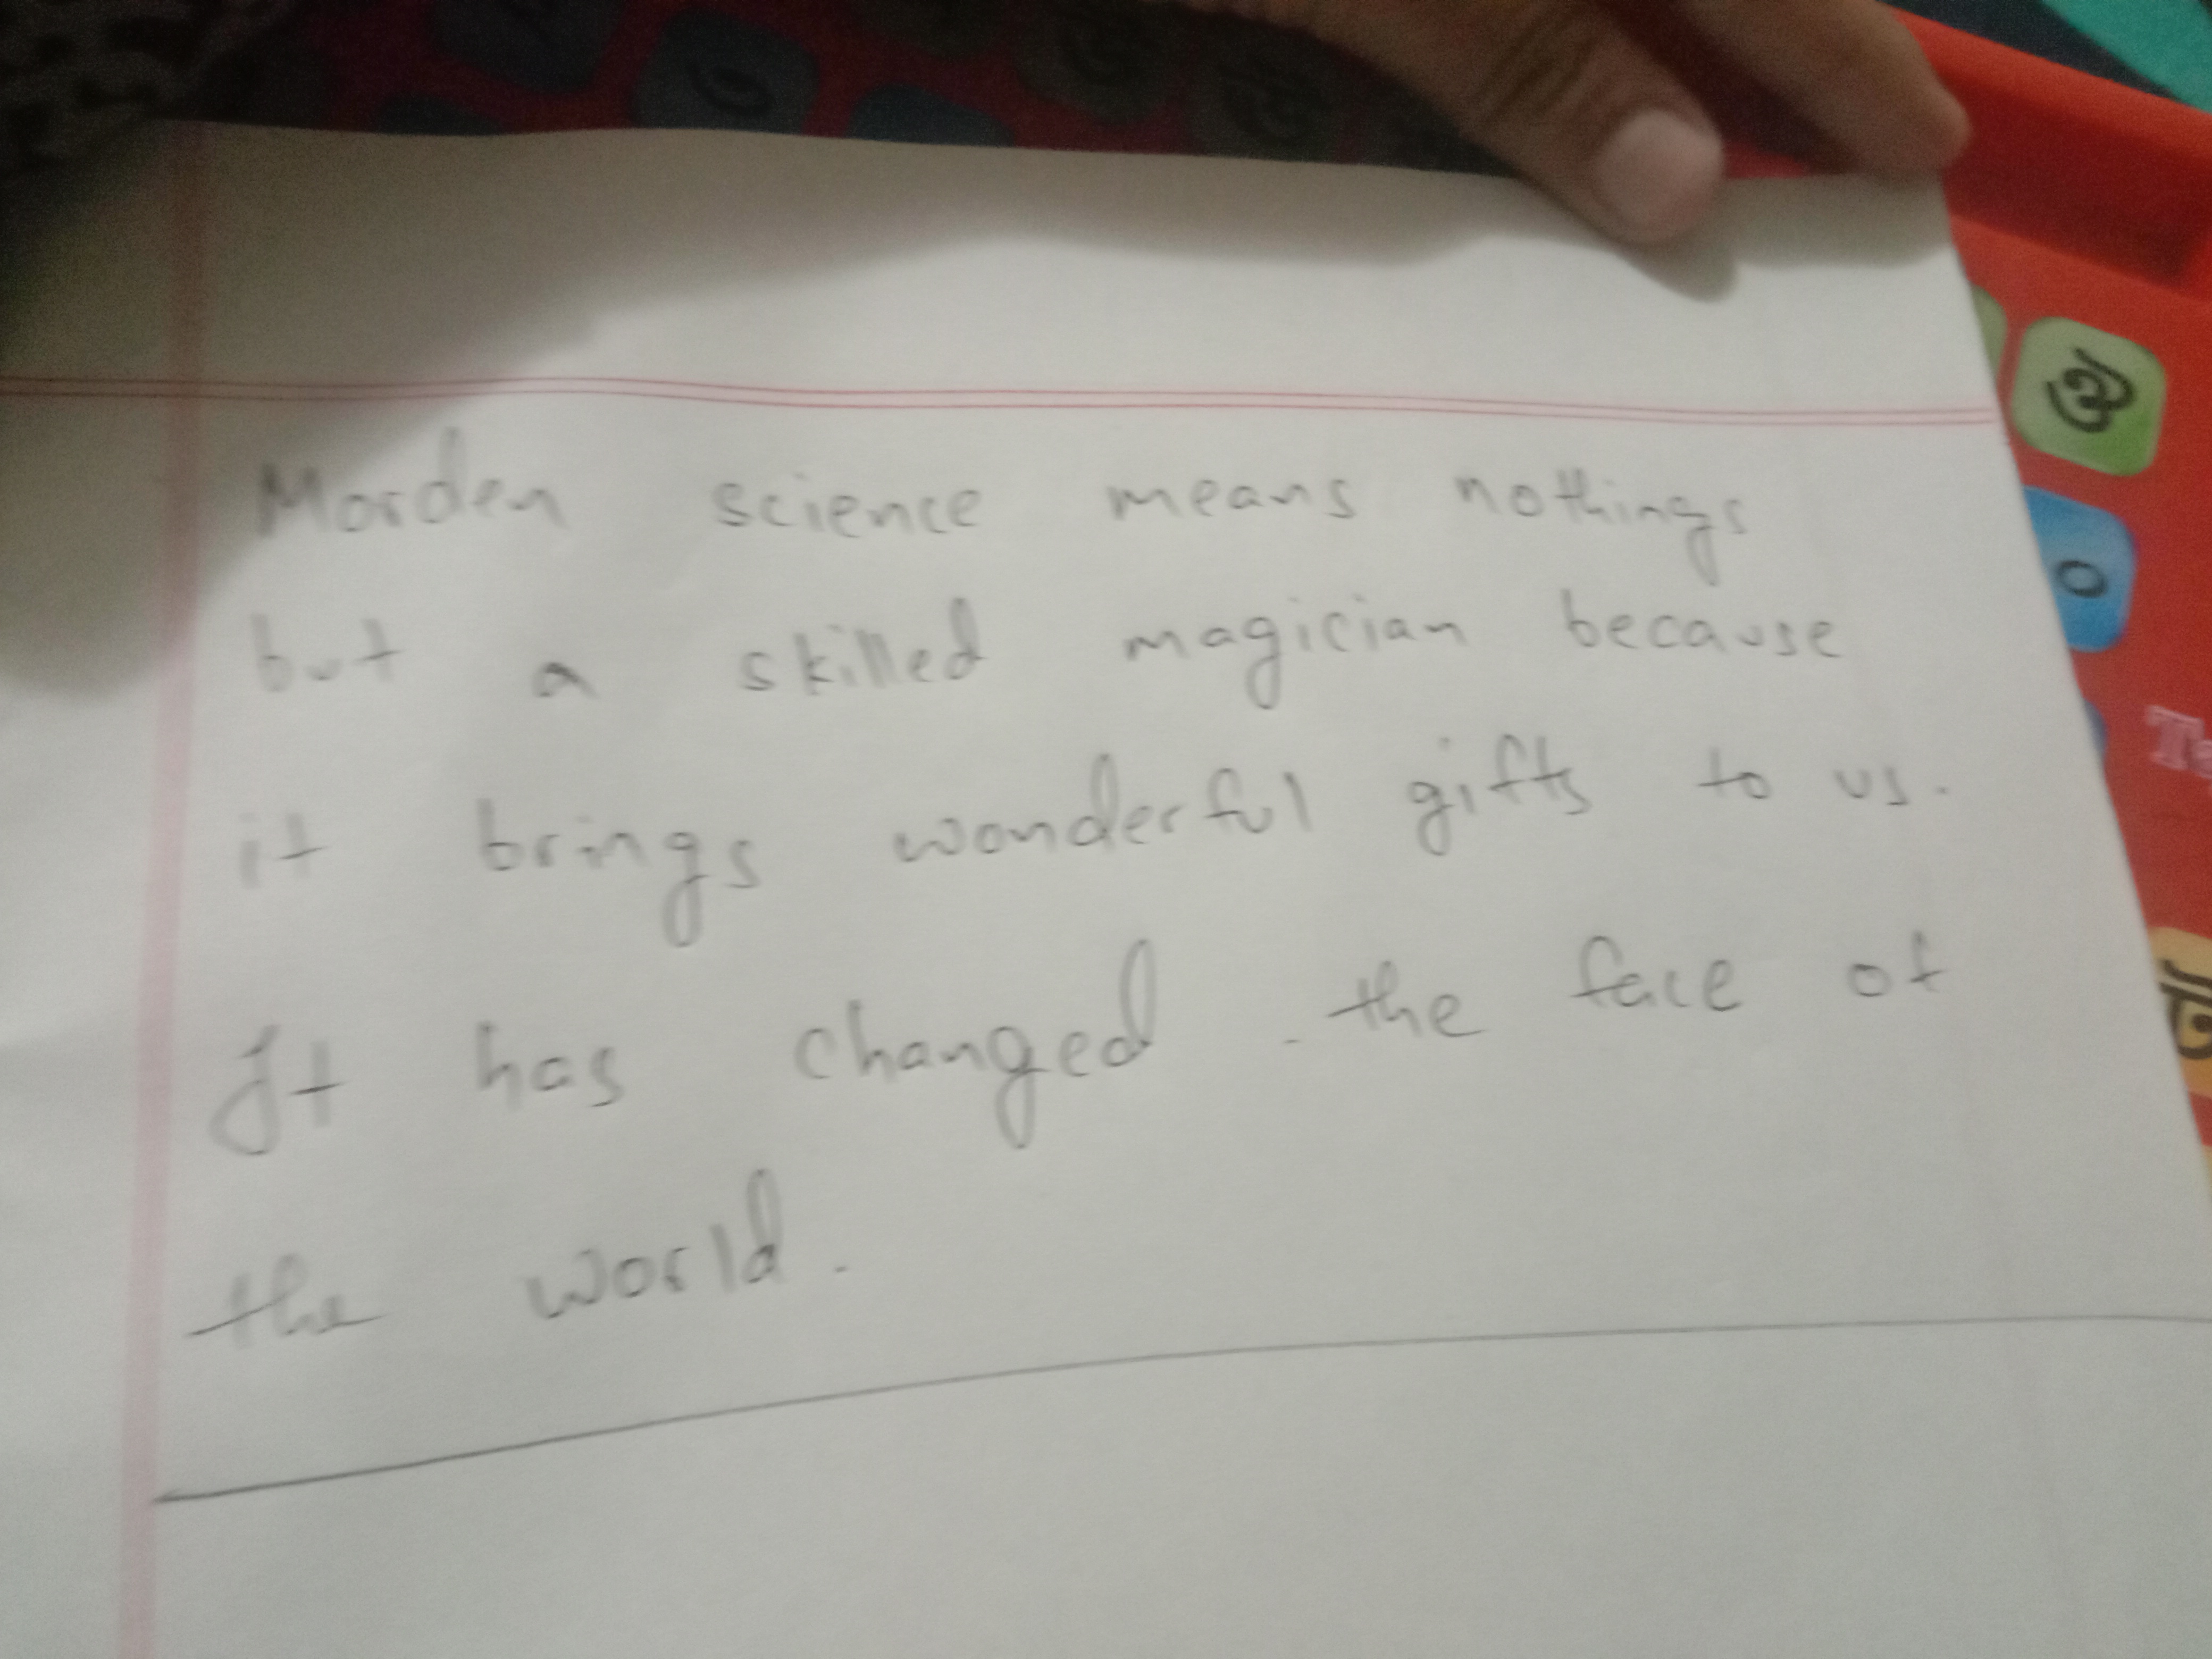 Morden science means nothings
but a skilled magician because
it brings wonderful gifts to us.
It has changed the face of
the world.